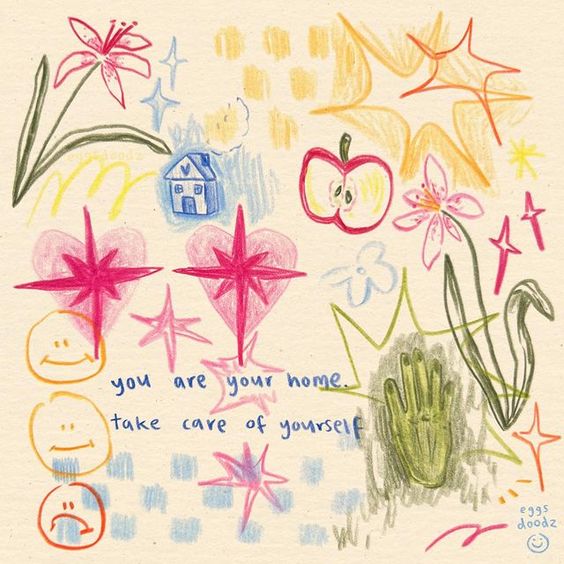 eggsdoodz
you are your home.
take care of yourself
eggs
doodz